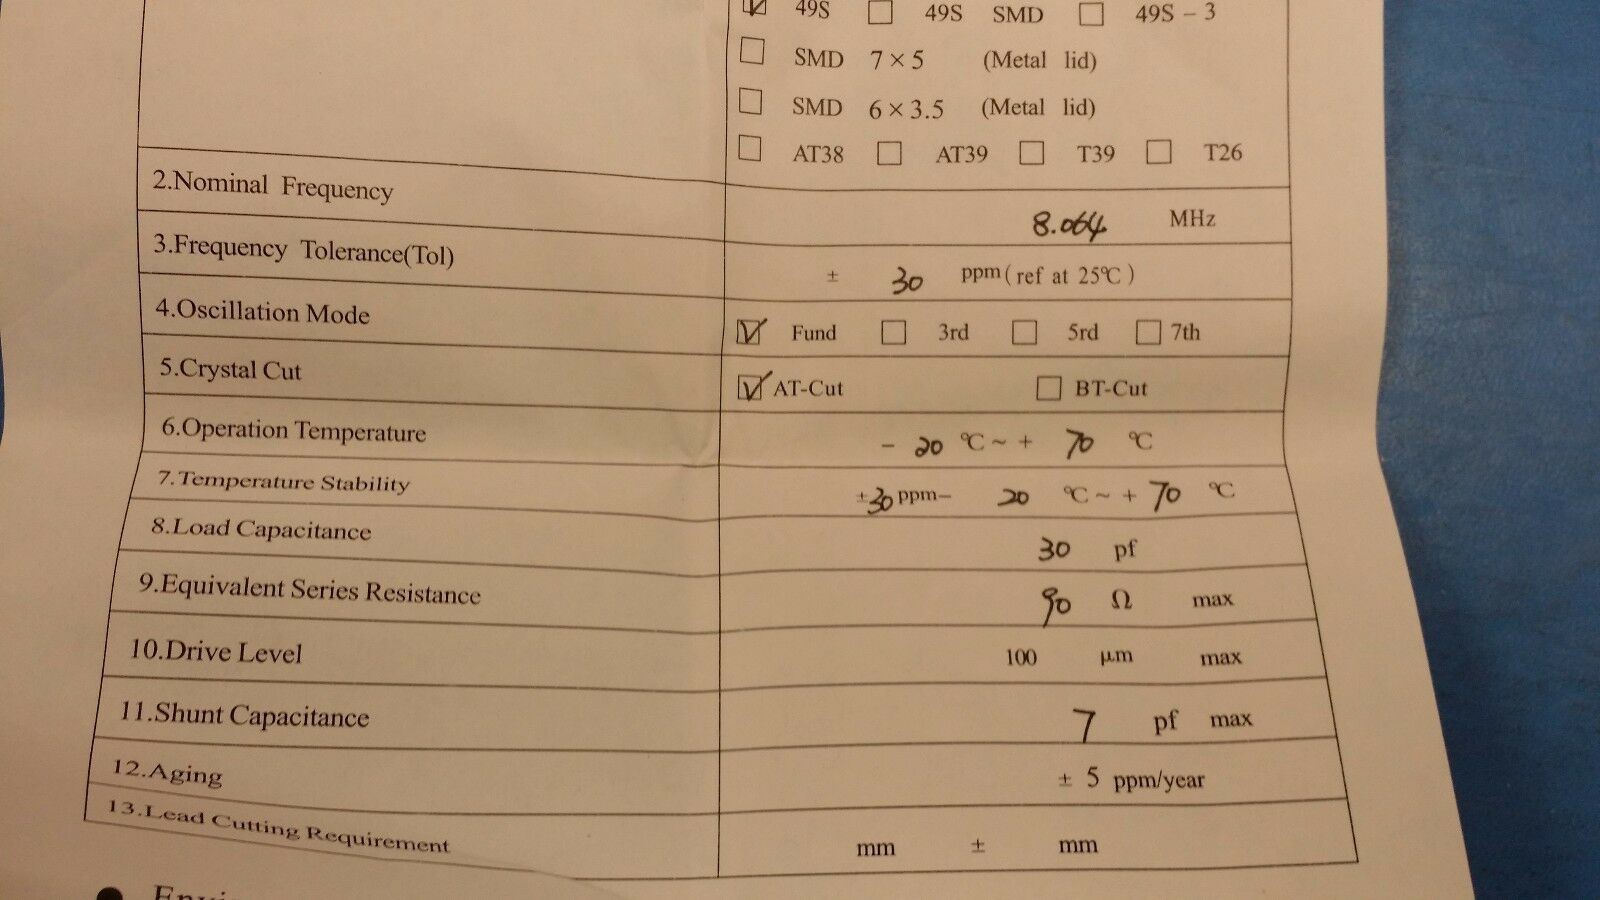 ☑ 49S ☐ 49S SMD ☐ 49S – 3
☐ SMD 7 × 5 (Metal lid)
☐ SMD 6 × 3.5 (Metal lid)
☐ AT38 ☐ AT39 ☐ T39 ☐ T26
2.Nominal Frequency 8.064 MHz
3.Frequency Tolerance(Tol) ± 30 ppm ( ref at 25℃ )
4.Oscillation Mode ☑ Fund ☐ 3rd ☐ 5rd ☐ 7th
5.Crystal Cut ☑ AT-Cut ☐ BT-Cut
6.Operation Temperature – 20 ℃ ~ + 70 ℃
7.Temperature Stability ±30 ppm– 20 ℃ ~ + 70 ℃
8.Load Capacitance 30 pf
9.Equivalent Series Resistance 90 Ω max
10.Drive Level 100 μm max
11.Shunt Capacitance 7 pf max
12.Aging ± 5 ppm/year
13.Lead Cutting Requirement mm ± mm